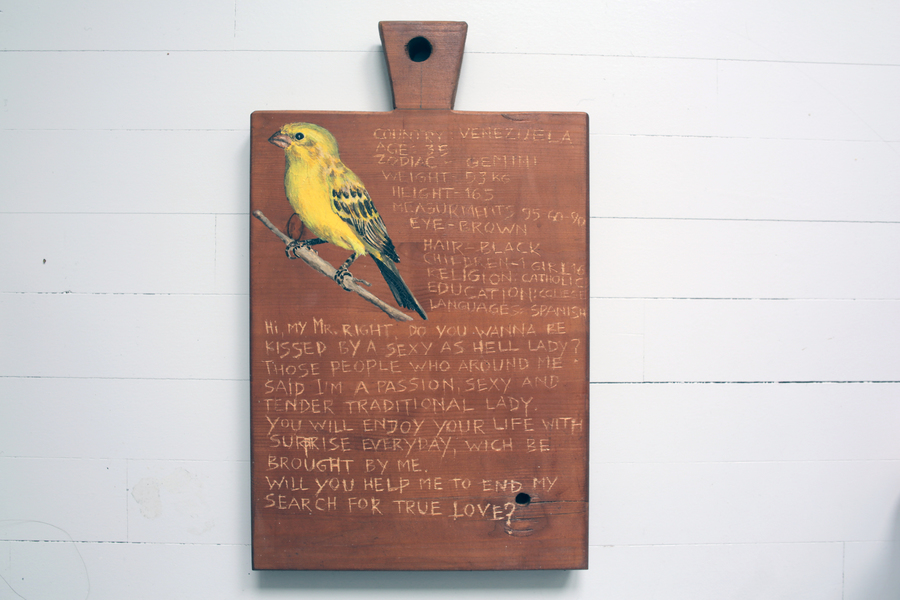 COUNTRY: VENEZUELA
AGE: 35
ZODIAC - GEMINI
WEIGHT - 53 KG
HEIGHT - 165
MEASURMENTS 95-60-90
EYE - BROWN
HAIR - BLACK
CHILDREN - 1 GIRL
RELIGION: CATHOLIC
EDUCATION:
LANGUAGES: SPANISH
HI, MY MR. RIGHT. DO YOU WANNA BE
KISSED BY A SEXY AS HELL LADY?
THOSE PEOPLE WHO AROUND ME
SAID I'M A PASSION, SEXY AND
TENDER TRADITIONAL LADY.
YOU WILL ENJOY YOUR LIFE WITH
SURPRISE EVERYDAY, WICH BE
BROUGHT BY ME.
WILL YOU HELP ME TO END MY
SEARCH FOR TRUE LOVE?